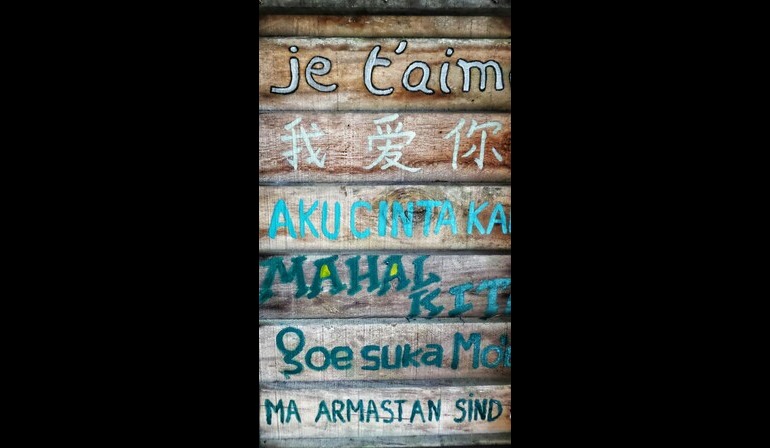 je t'aim
我爱你
AKU CINTA KA
MAHAL
KIT
goe suka Mo'
MA ARMASTAN SIND